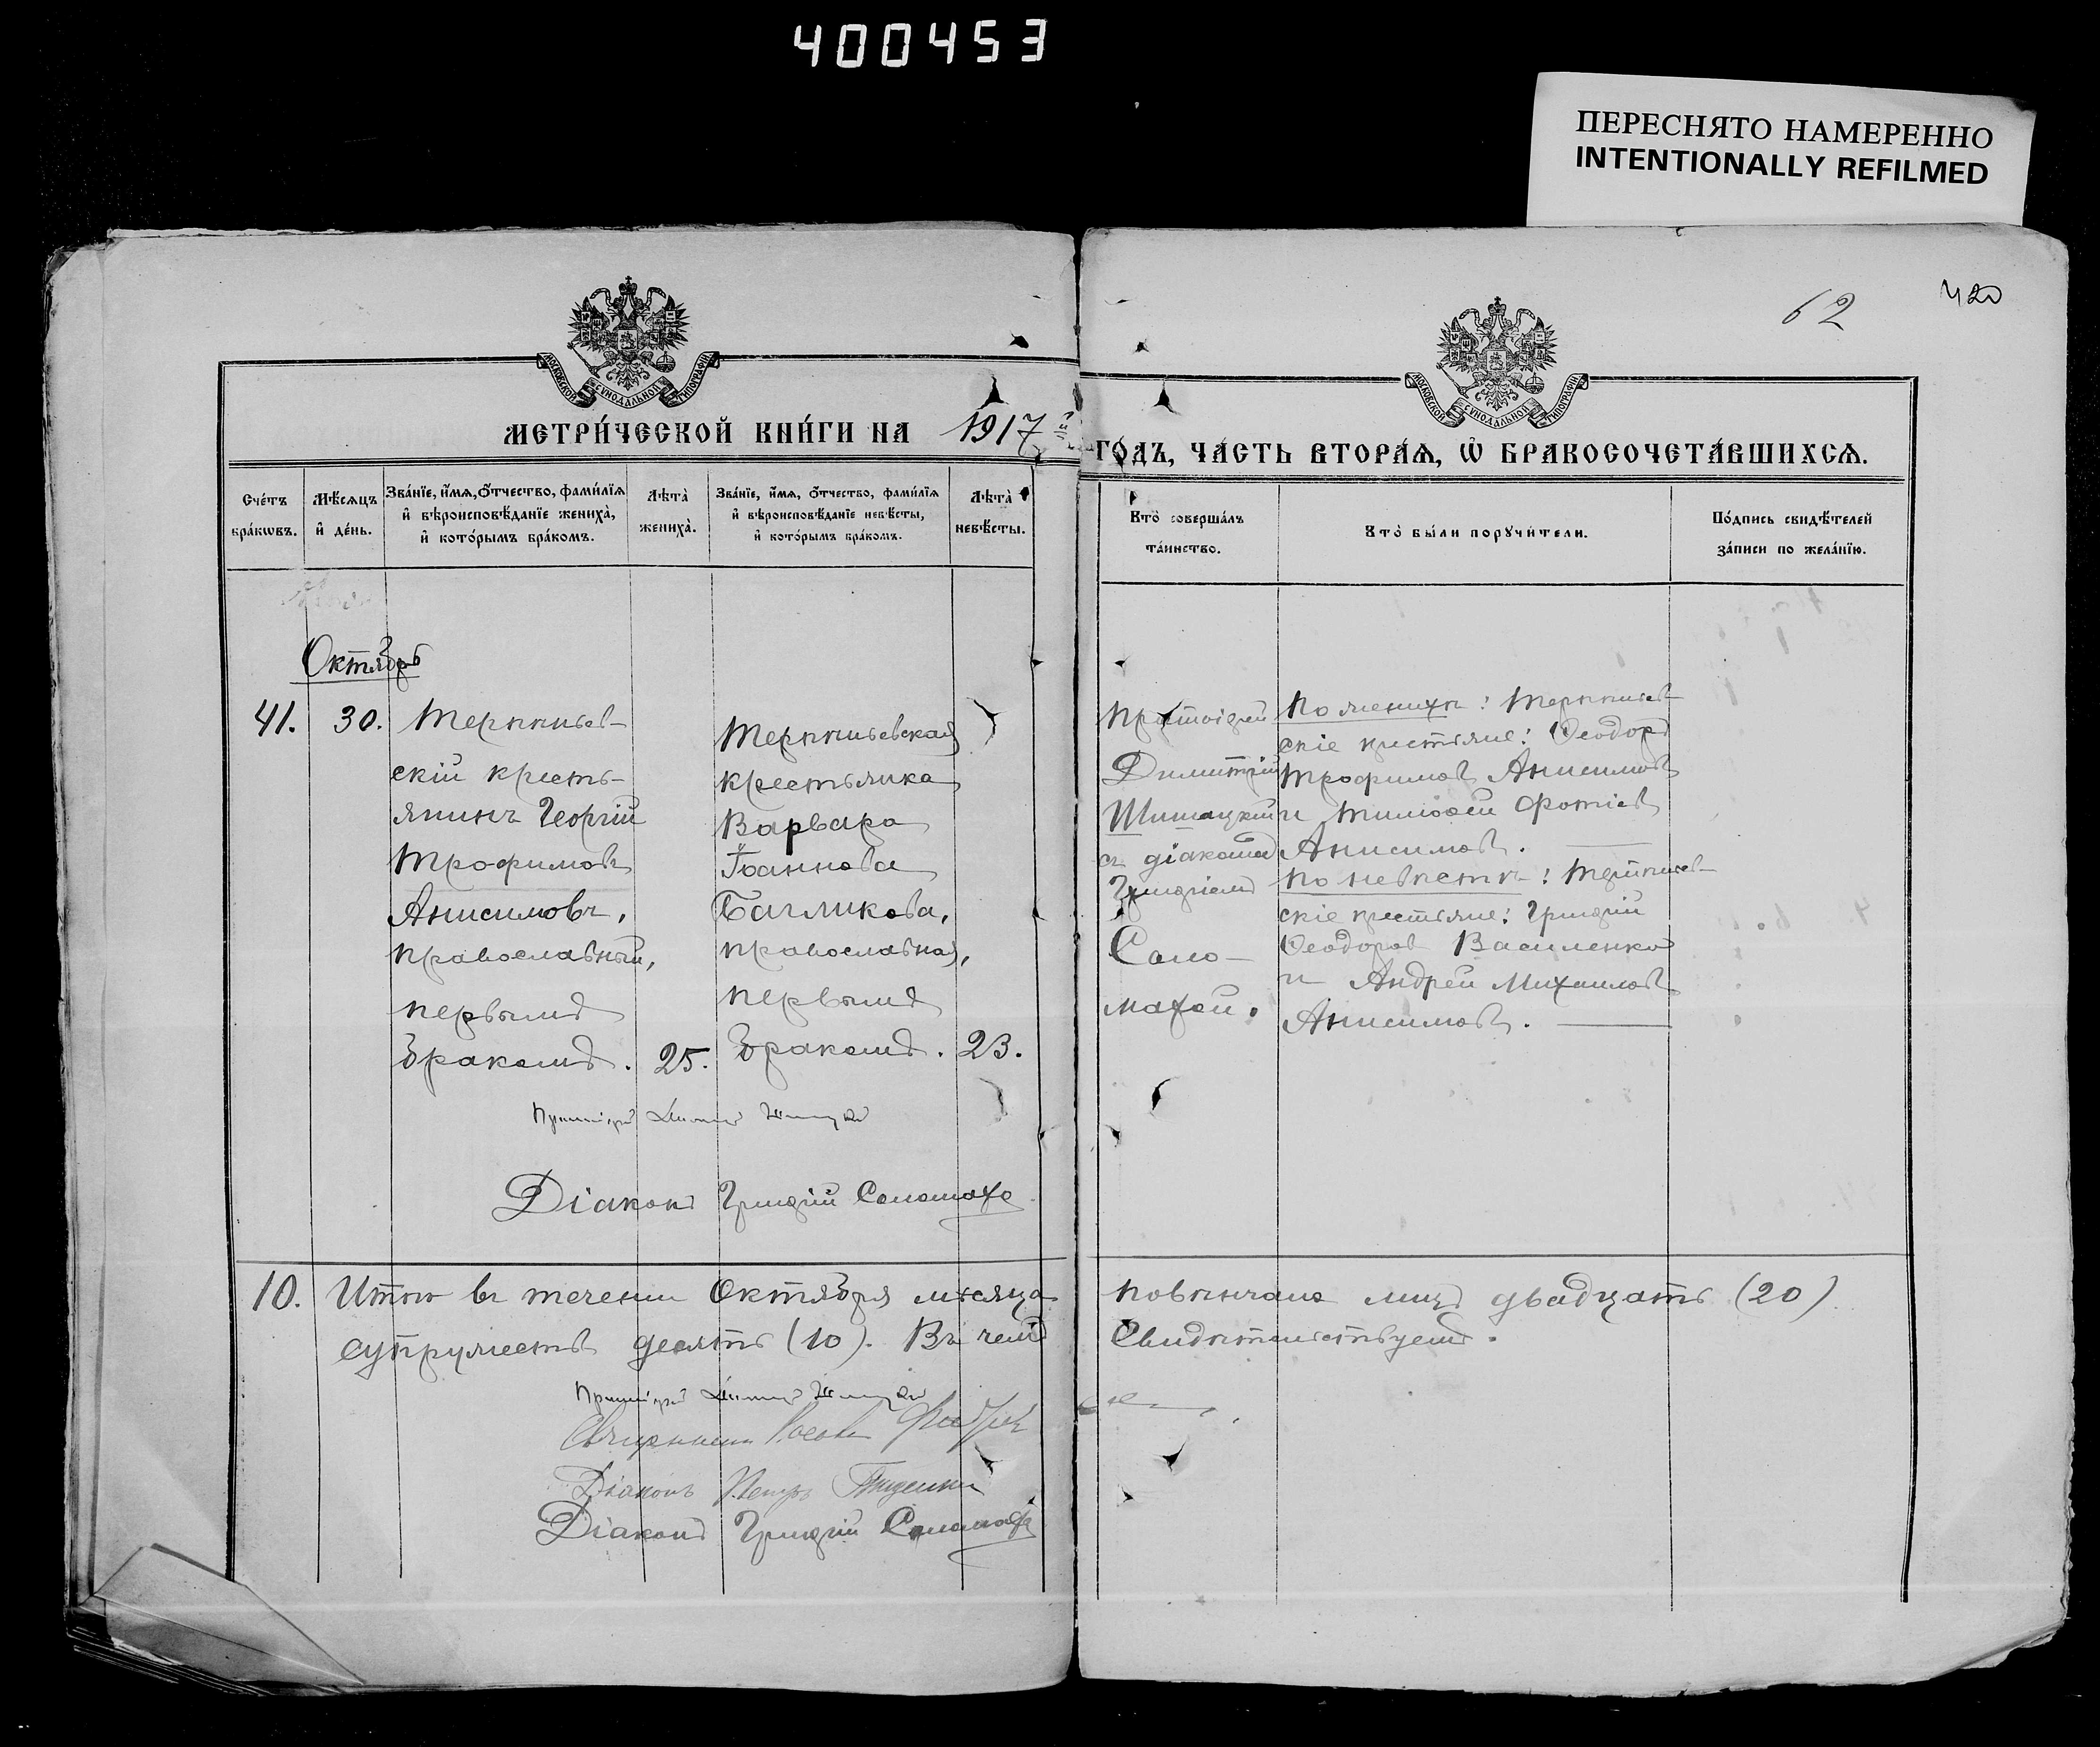 400453
ПЕРЕСНЯТО НАМЕРЕННО
INTENTIONALLY REFILMED
62
420
МОСКОВСКОЙ СѴНОДАЛЬНОЙ ТИПОГРАФІИ
МОСКОВСКОЙ СѴНОДАЛЬНОЙ ТИПОГРАФІИ
МЕТРИ́ЧЕСКОЙ КНИ́ГИ НА 1917 ГО́ДЪ, ЧА́СТЬ ВТОРА́Я, Ѿ БРАКОСОЧЕТА́ВШИХСЯ.
Сче́тъ бра́кѡвъ.
Мѣ́сяцъ и де́нь.
Зва́нїе, и́мя, ѻ́тчество, фами́лїя и вѣроисповѣ́данїе жениха̀, и кото́рымъ бра́комъ.
Лѣта̀ жениха̀.
Зва́нїе, и́мя, ѻ́тчество, фами́лїя и вѣроисповѣ́данїе невѣ́сты, и кото́рымъ бра́комъ.
Лѣта̀ невѣ́сты.
Кто̀ соверша́лъ та́инство.
Кто̀ бы́ли порꙋчи́тели.
По́дпись свидѣ́телей за́писи по жела́нїю.
Октябрь
41.
30.
скій кресть-
янинъ Георгій
Трофимовъ
Анисимовъ,
православный,
первымъ
бракомъ.
25.
крестьянка
Варвара
Іоаннова
Багликова,
православная,
первымъ
бракомъ.
23.
Протоіерей
Димитрій
Шишацкій
съ діакономъ
Григоріемъ
Соло-
махой.
По женихѣ:
скіе крестьяне: Ѳеодоръ
Трофимовъ Анисимовъ
и Тимоѳей Фотіевъ
Анисимовъ.
По невѣстѣ:
скіе крестьяне: Григорій
Ѳеодоровъ Василенко
и Андрей Михаиловъ
Анисимовъ.
Протоіерей Димитрій Шишацкій
Діаконъ Григорій Соломаха
10. Итого въ теченіи Октября мѣсяца повѣнчано лицъ двадцать (20)
супружествъ десять (10). Въ чемъ Свидѣтельствуемъ.
Протоіерей Димитрій Шишацкій
Священникъ
Діаконъ Петръ
Діаконъ Григорій Соломаха